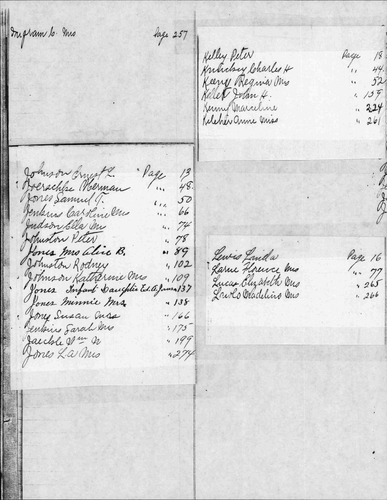 Ingram C. Mrs Page 257
Johnson Ernest L. Page 13
Joerschke Herman " 48
Jones Samuel J. " 50
Jenkins Caroline Mrs " 66
Judson Ella M " 74
Johnston Peter " 78
Jones Mrs Alice B. " 89
Johnston Rodney " 102
Johnson Katherine Mrs " 109
Jones Infant Daughter Ed & 137
Jones Minnie Mrs " 138
Jones Susan Mrs " 166
Jenkins Sarah Mrs " 175
Wm " 199
Jones L.A. Mrs " 274
Kelley Peter Page 18
Charles H " 44
Regina Mrs " 52
John H. " 159
Marceline " 224
Kelcher Anne Miss " 261
Lewis Linda Page 16
Florence Mrs " 77
Lucas Elizabeth Mrs " 265
Madeline Mrs " 266